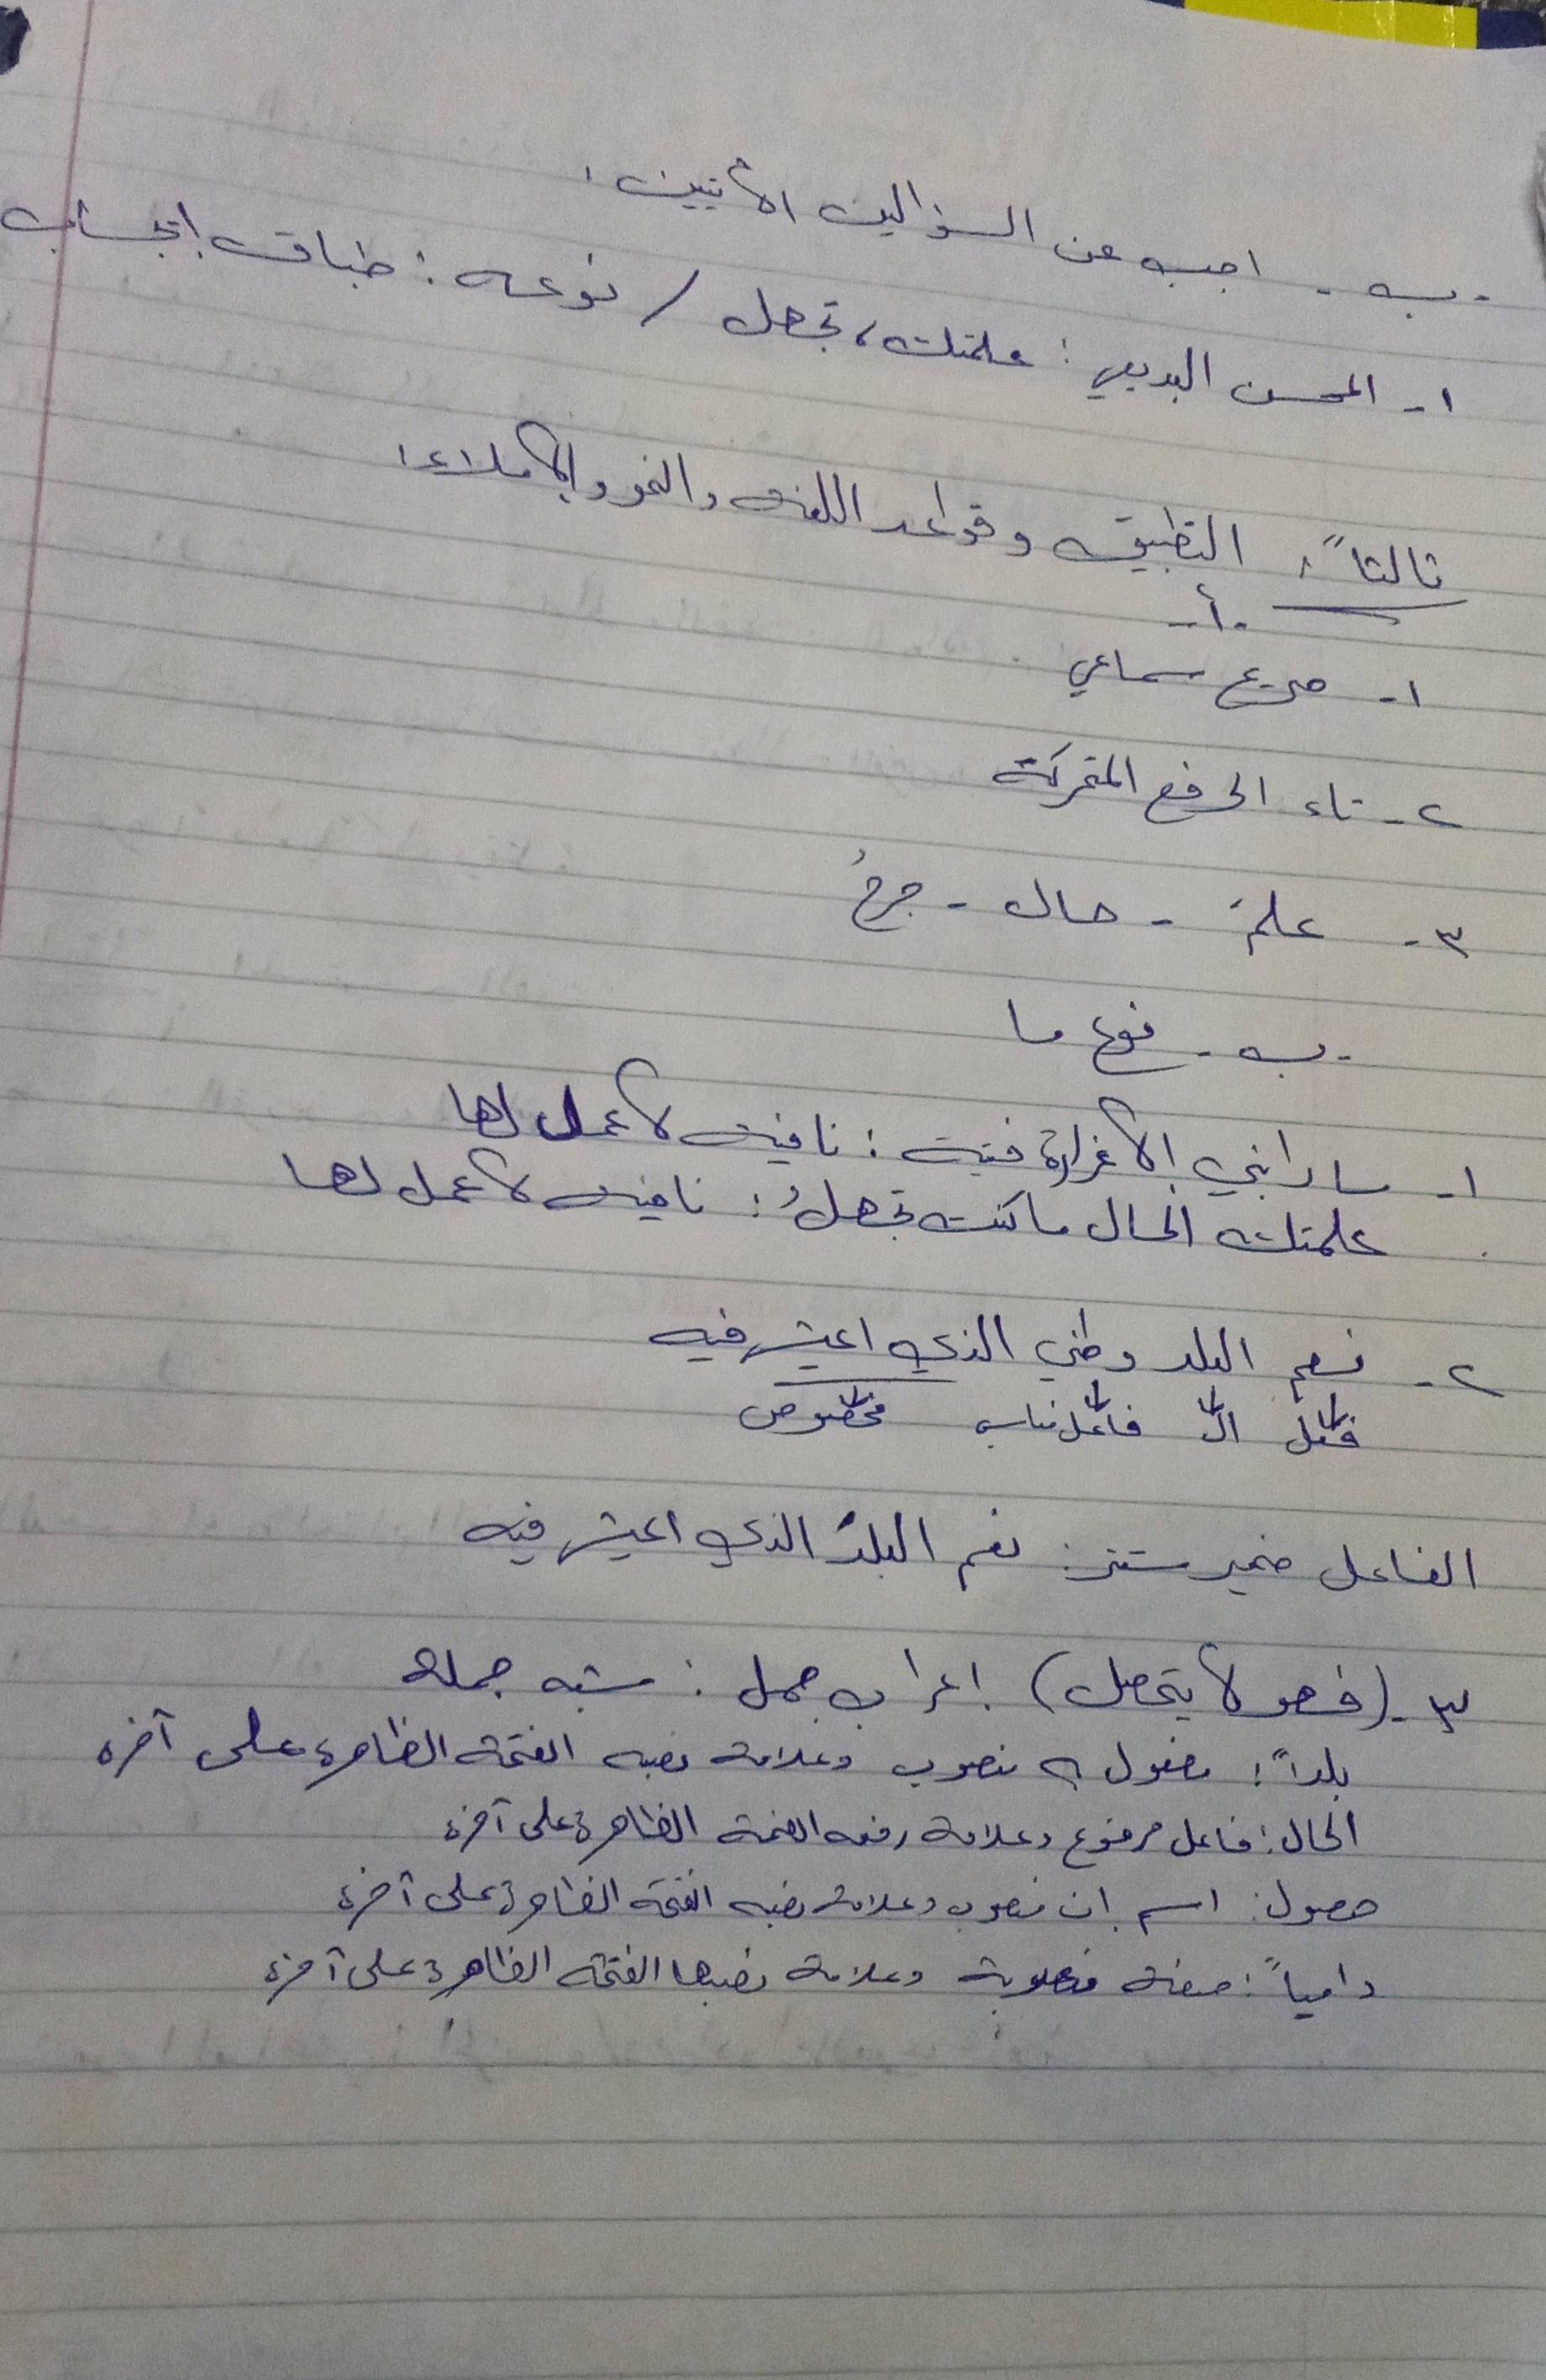 - ب - اجب عن السؤالين الآتيين:
١- المحسن البديعي: علمتك، تجهل / نوعه: طباق إيجاب
ثالثاً: التطبيق وقواعد اللغة والنحو والإملاء:
- أ -
١- صريح سماعي
٢- تاء الرفع المتحركة
٣- علمَ - حال - جرحُ
- ب - نوع ما
١- ما رابني إلا غرارة فتية: نافية لا عمل لها
علمتك الحال ما كنت تجهلُ: نافية لا عمل لها
٢- نعم البلد وطني الذي اعيش فيه
فعل ال فاعل مناسب مخصوص
الفاعل ضمير مستتر: نعم البلدُ الذي اعيش فيه
٣- (فهو لا يتحصل) إعراب جمل: شبه جملة
بلداً: مفعول به منصوب وعلامة نصبه الفتحة الظاهرة على آخره
الحال: فاعل مرفوع وعلامة رفعه الضمة الظاهرة على آخره
حصول: اسم إن منصوب وعلامة نصبه الفتحة الظاهرة على آخره
دامياً: صفة منصوبة وعلامة نصبها الفتحة الظاهرة على آخره